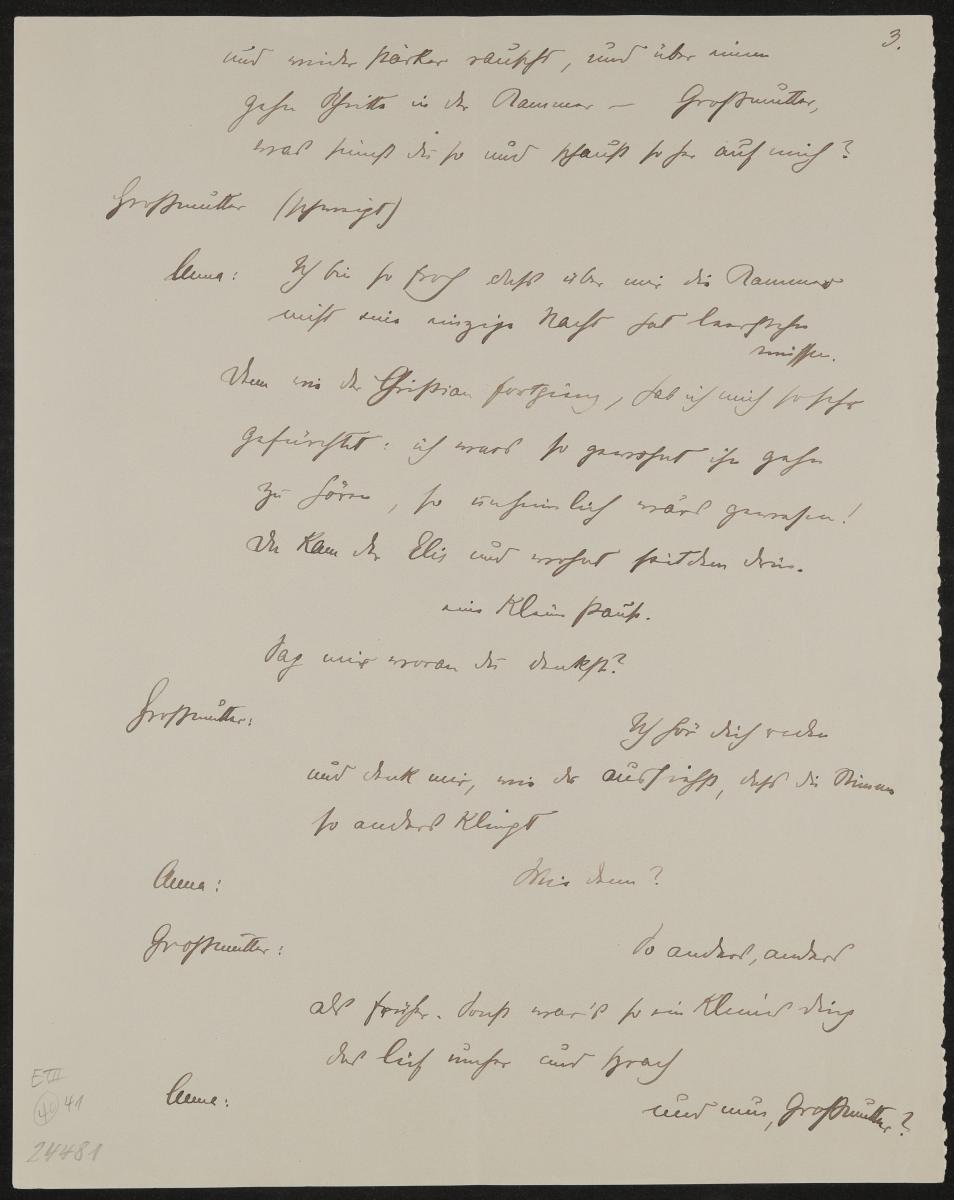 3.
und wieder stärker rauscht, und über einem
gehn Schritte in der Kammer — Großmutter,
was sinnst du so und schaust so her auf mich?
Großmutter (schweigt)
Anna: Ich bin so froh daß über mir die Kammer
nicht eine einzige Nacht hat leerstehn
müssen.
Denn wie der Christian fortgieng, hab ich mich so sehr
gefürchtet: ich wars so gewohnt ihn gehn
zu hören, so unheimlich wärs gewesen!
Da kam der Elis und wohnt seitdem drin.
eine kleine Pause.
Sag mir woran du denkst?
Großmutter: Ich hör dich reden
und denk mir, wie du aussiehst, daß die Stimme
so anders klingt
Anna: Wie denn?
Großmutter: So anders, anders
als früher. Sonst war's so ein kleines Ding
das lief umher und sprach
Anna: und nun, Großmutter?
E III
40 41
24481